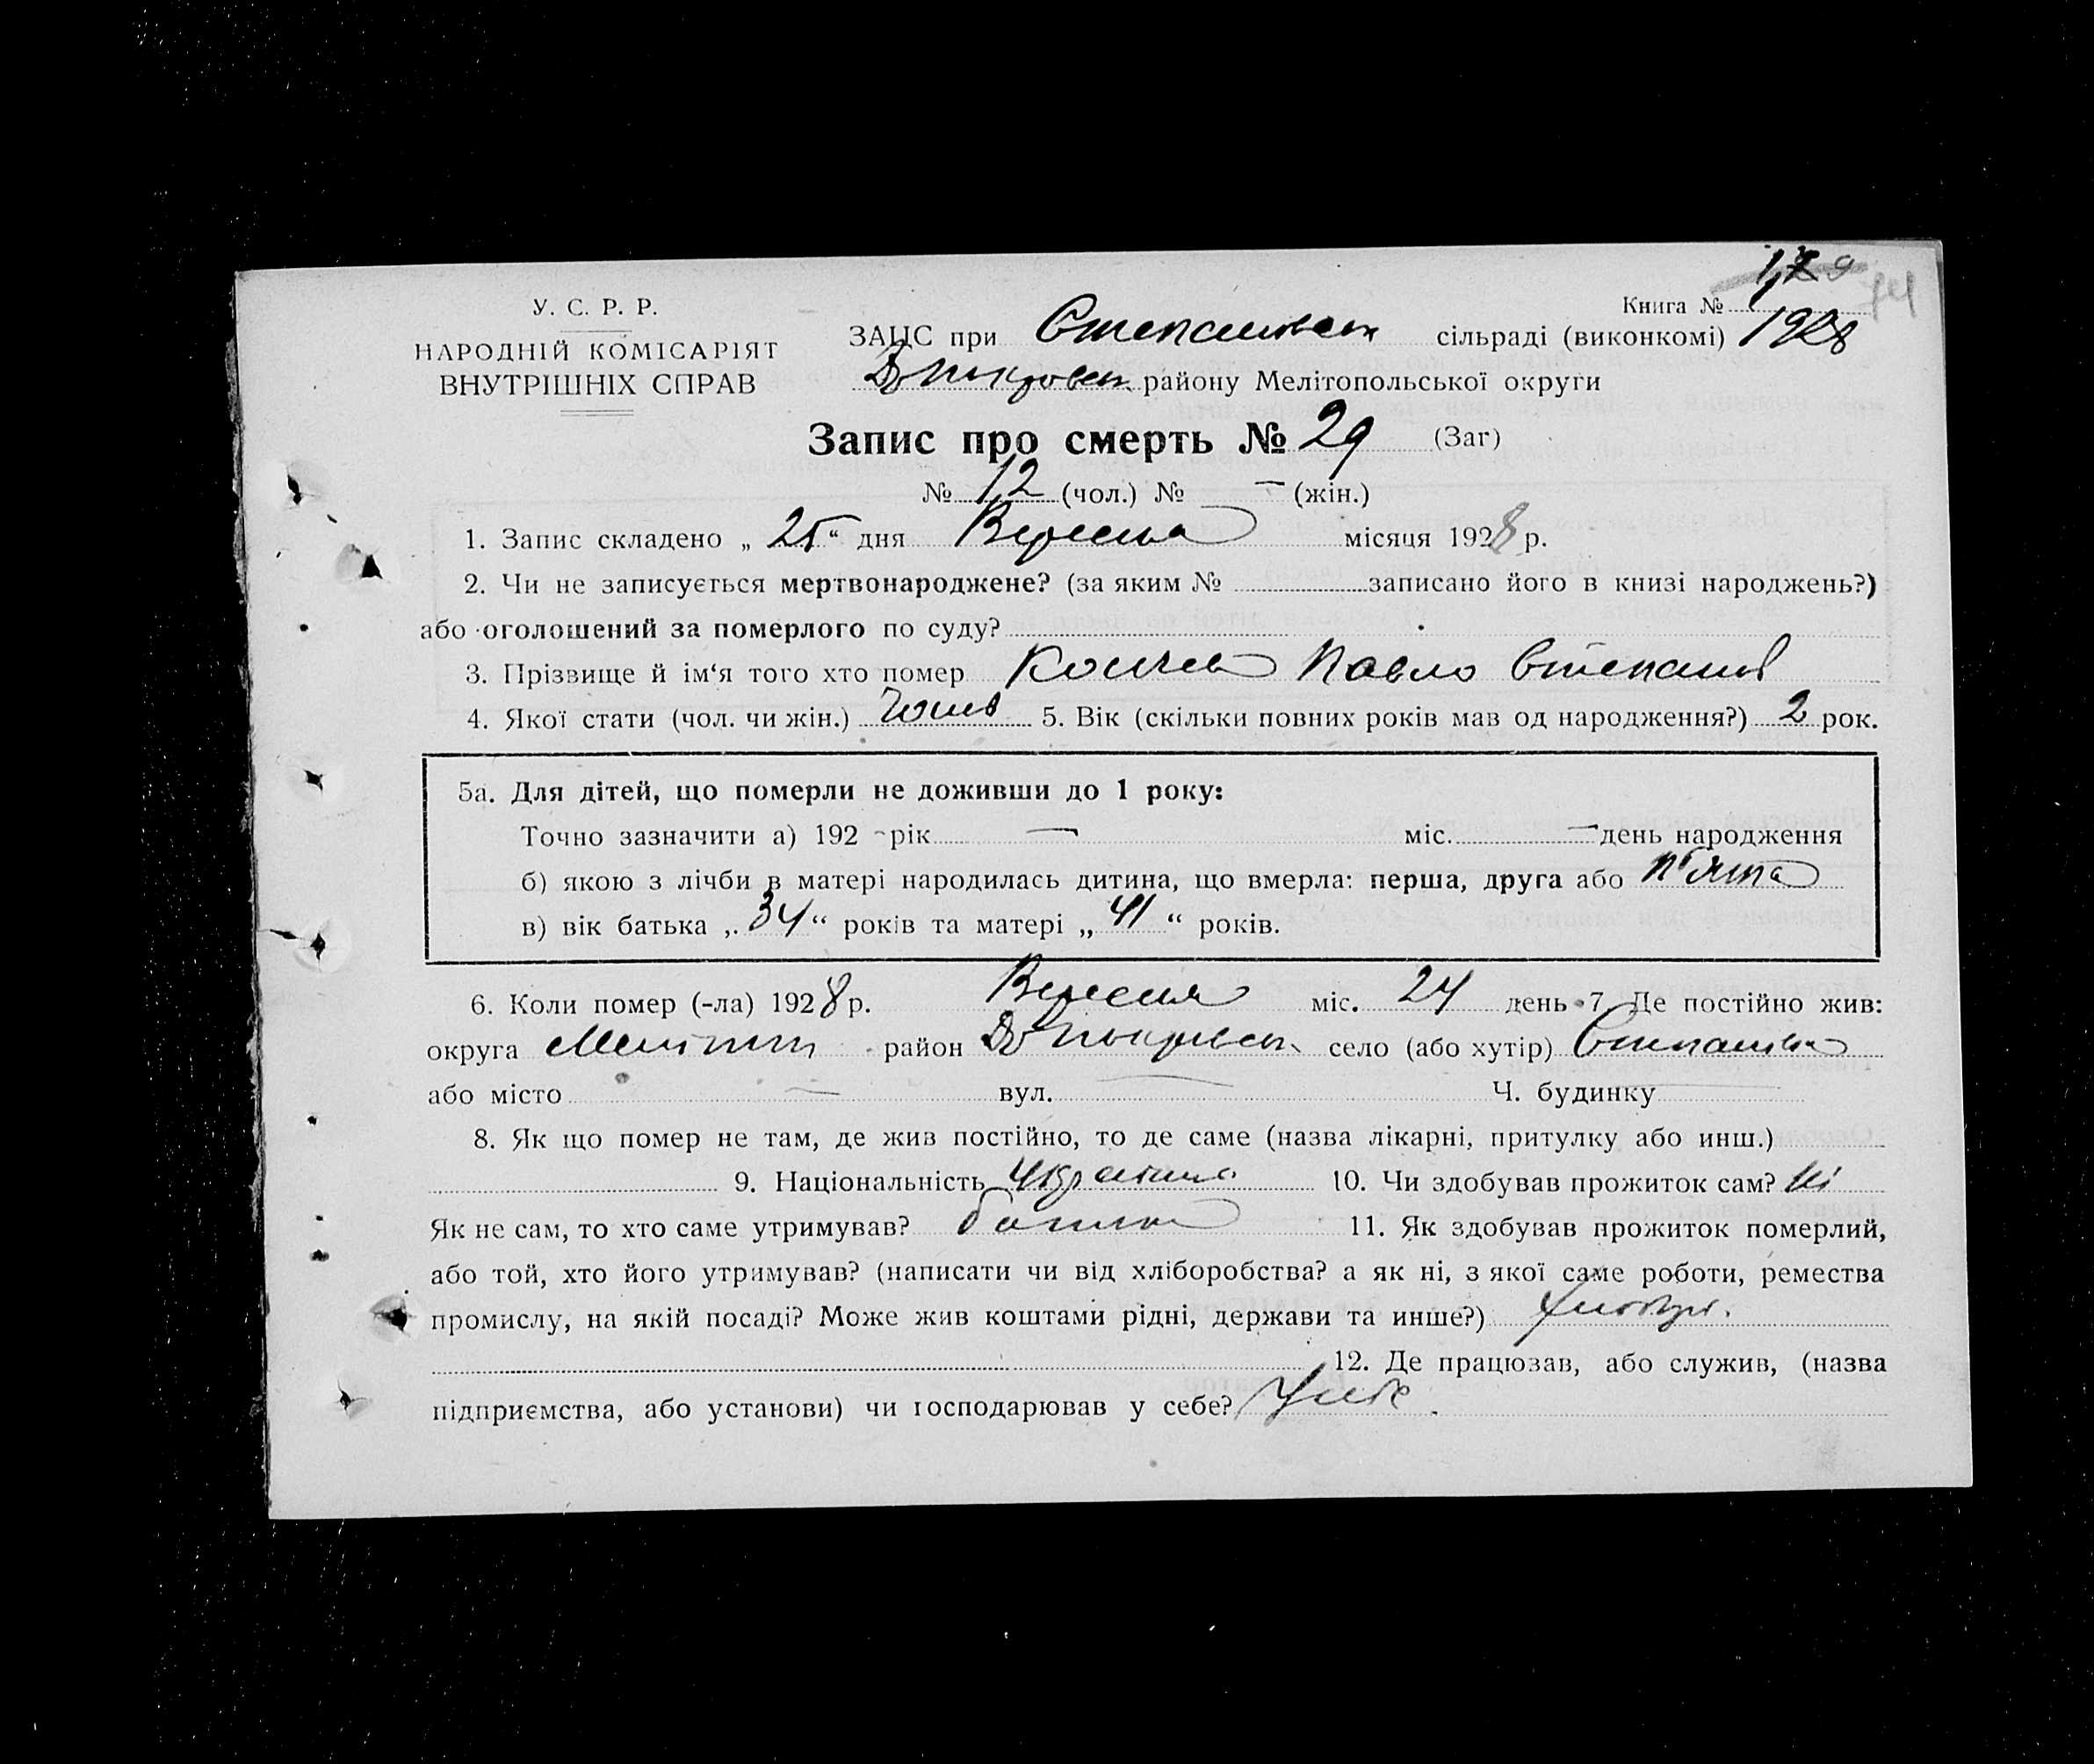 Книга №
1928
У. С. Р. Р.
НАРОДНІЙ КОМІСАРІЯТ
ВНУТРІШНІХ СПРАВ
ЗАЦС при сільраді (виконкомі)
району Мелітопольської округи
Запис про смерть № 29 (Заг)
№ 12 (чол.) № — (жін.)
1. Запис складено „ 25 “ дня Вересня місяця 1928 р.
2. Чи не записується мертвонароджене? (за яким № записано його в книзі народжень?)
або оголошений за померлого по суду?
3. Прізвище й ім‘я того хто помер Павло Степанов
4. Якої стати (чол. чи жін.) 5. Вік (скільки повних років мав од народження?) 2 рок.
5а. Для дітей, що померли не доживши до 1 року:
Точно зазначити а) 192 - рік — міс. — день народження
б) якою з лічби в матері народилась дитина, що вмерла: перша, друга або п'ята
в) вік батька „ 34 “ років та матері „ 41 “ років.
6. Коли помер (-ла) 1928 р. Вересня міс. 24 день 7. Де постійно жив:
округа район село (або хутір) Степанівка
або місто — вул. — Ч. будинку —
8. Як що помер не там, де жив постійно, то де саме (назва лікарні, притулку або инш.)
9. Національність 10. Чи здобував прожиток сам? Ні
Як не сам, то хто саме утримував? батько 11. Як здобував прожиток померлий,
або той, хто його утримував? (написати чи від хліборобства? а як ні, з якої саме роботи, ремества
промислу, на якій посаді? Може жив коштами рідні, держави та инше?) хлібор.
12. Де працював, або служив, (назва
підприємства, або установи) чи господарював у себе? У себе.